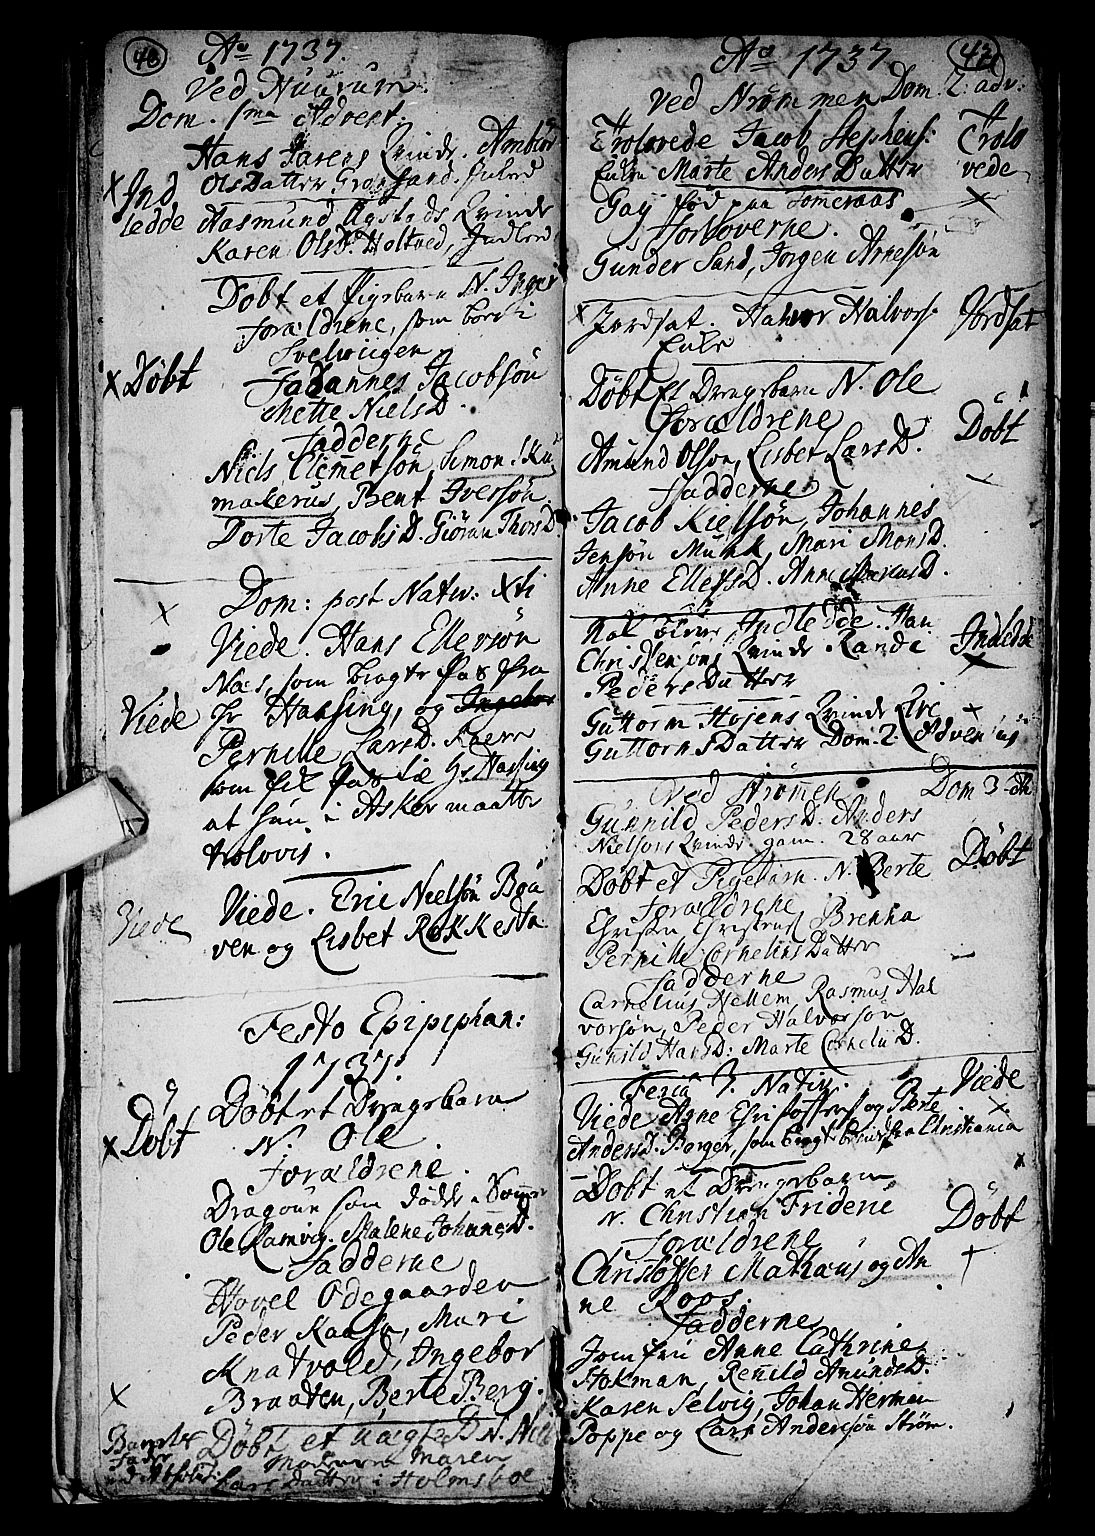 48
Ao 1737.
Ved Huurum.
Dom. 1ma Advent.
Hans Qvinde. Ambiør
OlsDatter Grønsand. Indled
Ind
ledde
Aasmund Qvinde
Karen OlsD. Holtved, Indled
Døbt et Pigebarn N. Inger
Forældrene, som boede i
Svelviigen
Døbt
Johannes Jacobsøn
Mette NielsD.
Fadderne
Niels Clemetsøn, Simon Sku
makerus, Bent Ivessøn
Dorte JacobsD. Giøran ThorsD.
Dom: post Nativ: Xti
Viede. Hans Ellevsøn
Næs, som bragte Pas fra
Viede
Hr Hassing, og
Pernille LarsD.
som fik Pas til Hr Hassing
at hun i Asker maatte
trolovis.
Viede
Viede. Eric Nielsøn
ven og Lisbet Rokkestn.
Festo Epipiphan:
1737.
Døbt
Døbt et Drengebarn
N. Ole.
Forældrene.
Dragoun som døde i
Ole Ramvig. Malene JohannesD.
Fadderne
Hovel Odegaarden
Peder Kaasa, Mari
Knatvold, Ingebor
Braaten, Berte Berg.
Døbt et uægte B. N.
Moderen Maren
LarsDatter i Holmsboe
Fader
43
Ao 1737
Ved Strømmen Dom. 2. adv:
Trolovede Jacob Stephens:
Trolo
vede
Enke Marte AndersDatter
Gaj fød paa Someraas
Forloverne.
Gunder Sand, Jørgen Arnesøn
Jordsat. Halvor Halvors:
Jordsat
Enke
Døbt Et Drengebarn N. Ole
Døbt
Forældrene
Amund Olson, Lisbet LarsD.
Fadderne
Jacob Kielsøn, Johannes
Jensøn Munk, Mari MonsD.
Anne EllefsD. Anne
Indledde. Han
Indledde
Christensøns Qvinde Randi
PedersDatter
Guttorm Hojens Qvinde Live
GuttormsDatter Dom. 2 Advent
Ved Strømen Dom 3
Gunnild PedersD. Anders
Nielsons Qvinde gam. 28 aar
Døbt
Døbt et Pigebarn. N. Berte
Forældrene
Christen Christens Brenna
Pernille CorneliusDatter
Fadderne
Cornelius Hellem, Rasmus Hal
vorsøn, Peder Halvorsøn
Gunild HansD: Marte CorneliiD.
Feria 3. Nativ.
Viede
Viede Arne Christoffers og Berte
AndersD. Berger, som bragt fra Christiania
Døbt et Drengebarn
N. Christian Frideric
Døbt
Forældrene
Christoffer Mathæus og An
ne Roos.
Fadderne
Jomfru Anne Cathrine
Stokman, Renild AmundsD.
Karen Selvig, Johan Herman
Poppe og Lars Andersøn Strøm.